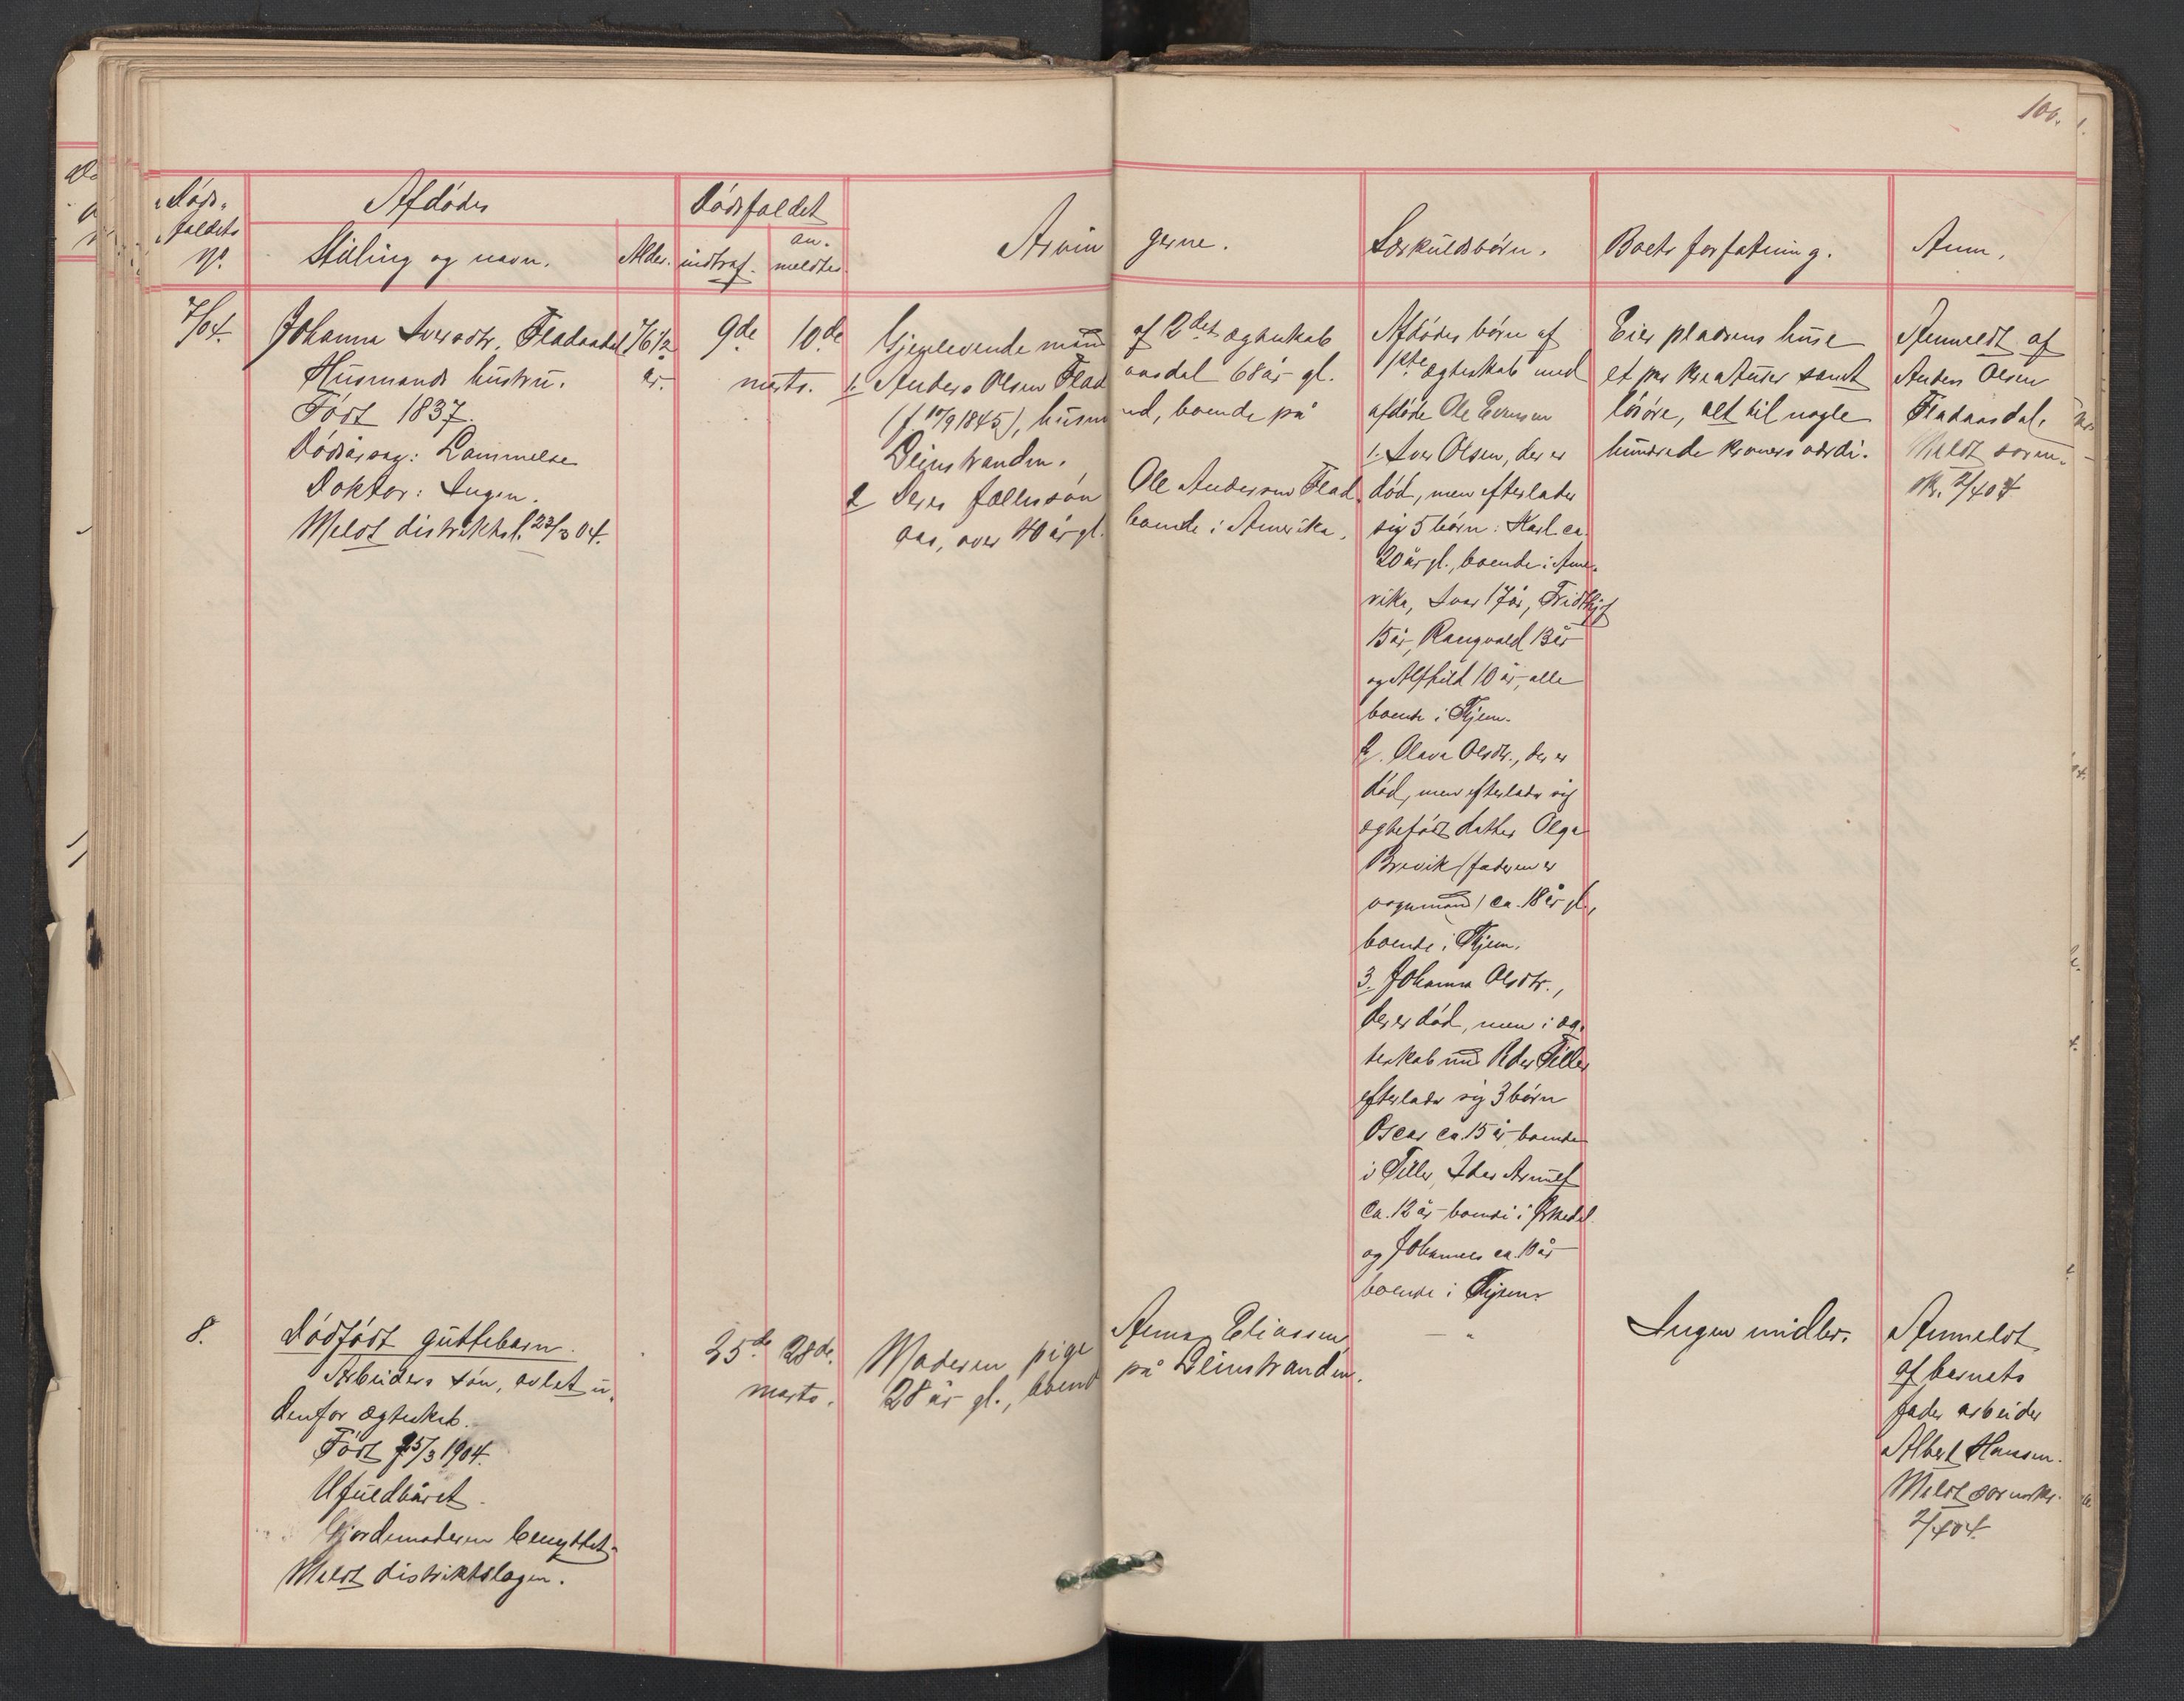 100.
Døds-
faldets
No.
Afdødes
Stilling og navn.
Alder.
Dødsfaldet
indtraf.
an-
meldtes.
Arvin gerne.
Særkuldsbørn.
Boets forfatning.
Anm.
7/04.
Johanna Iversdtr. Fladaasdal
Husmands hustru.
Født 1837.
Dødsårsag: Lammelse
Doktor: Ingen.
Meldt distriktsl. 23/3 04.
76 1/2
år.
9de 10de
marts.
Gjenlevende mand af 2det ægteskab
1. Anders Olsen Flad aasdal 68 år gl.
(f. 10/9 1845), husm nd, boende på
Leinstranden.
2 Deres fælles søn Ole Andersen Flad
aas, over 40 år gl. boende i Amerika.
Afdødes børn af
1ste ægteskab med
afdøde Ole Evensen
1. Iver Olsen, der er
død, men efterlader
sig 5 børn: Karl ca.
20 år gl., boende i Ame-
rika, Ivar 17 år, Fridthjof
15 år, Rangvald 13 år
og Alfhild 10 år, alle
boende i Thjem.
2. Olava Olsdtr., der er
død, men efterlader sig
ægtefødt datter Olga
Brevik (faderen er
vognmand) ca. 18 år gl.,
boende i Thjem.
3. Johanna Olsdtr.,
der er død, men i æg-
teskab med Peder Tiller
efterlader sig 3 børn
Oscar ca. 15 år boende
i Tiller,
ca. 12 år boende i Orkedal
og Johannes ca. 10 år
boende i Thjem.
Eier pladsens huse
et par kreaturer samt
løsøre, alt til nogle
hundrede kroners værdi.
Anmeldt af
Anders Olsen
Fladaasdal.
Meldt soren-
skr. 2/4 04
8.
Dødfødt guttebarn.
Arbeiders søn, avlet u-
denfor ægteskab.
Født 25/3 1904.
Ufuldbåret.
Gjordemoderen benyttet.
Meldt distriktslægen.
25de 28de
marts.
Moderen pige Anna Eliassen,
28 år gl., boend på Leinstranden.
— "
Ingen midler.
Anmeldt
af barnets
fader arbeider
Albert Hansen.
Meldt sorenskr.
2/4 04.